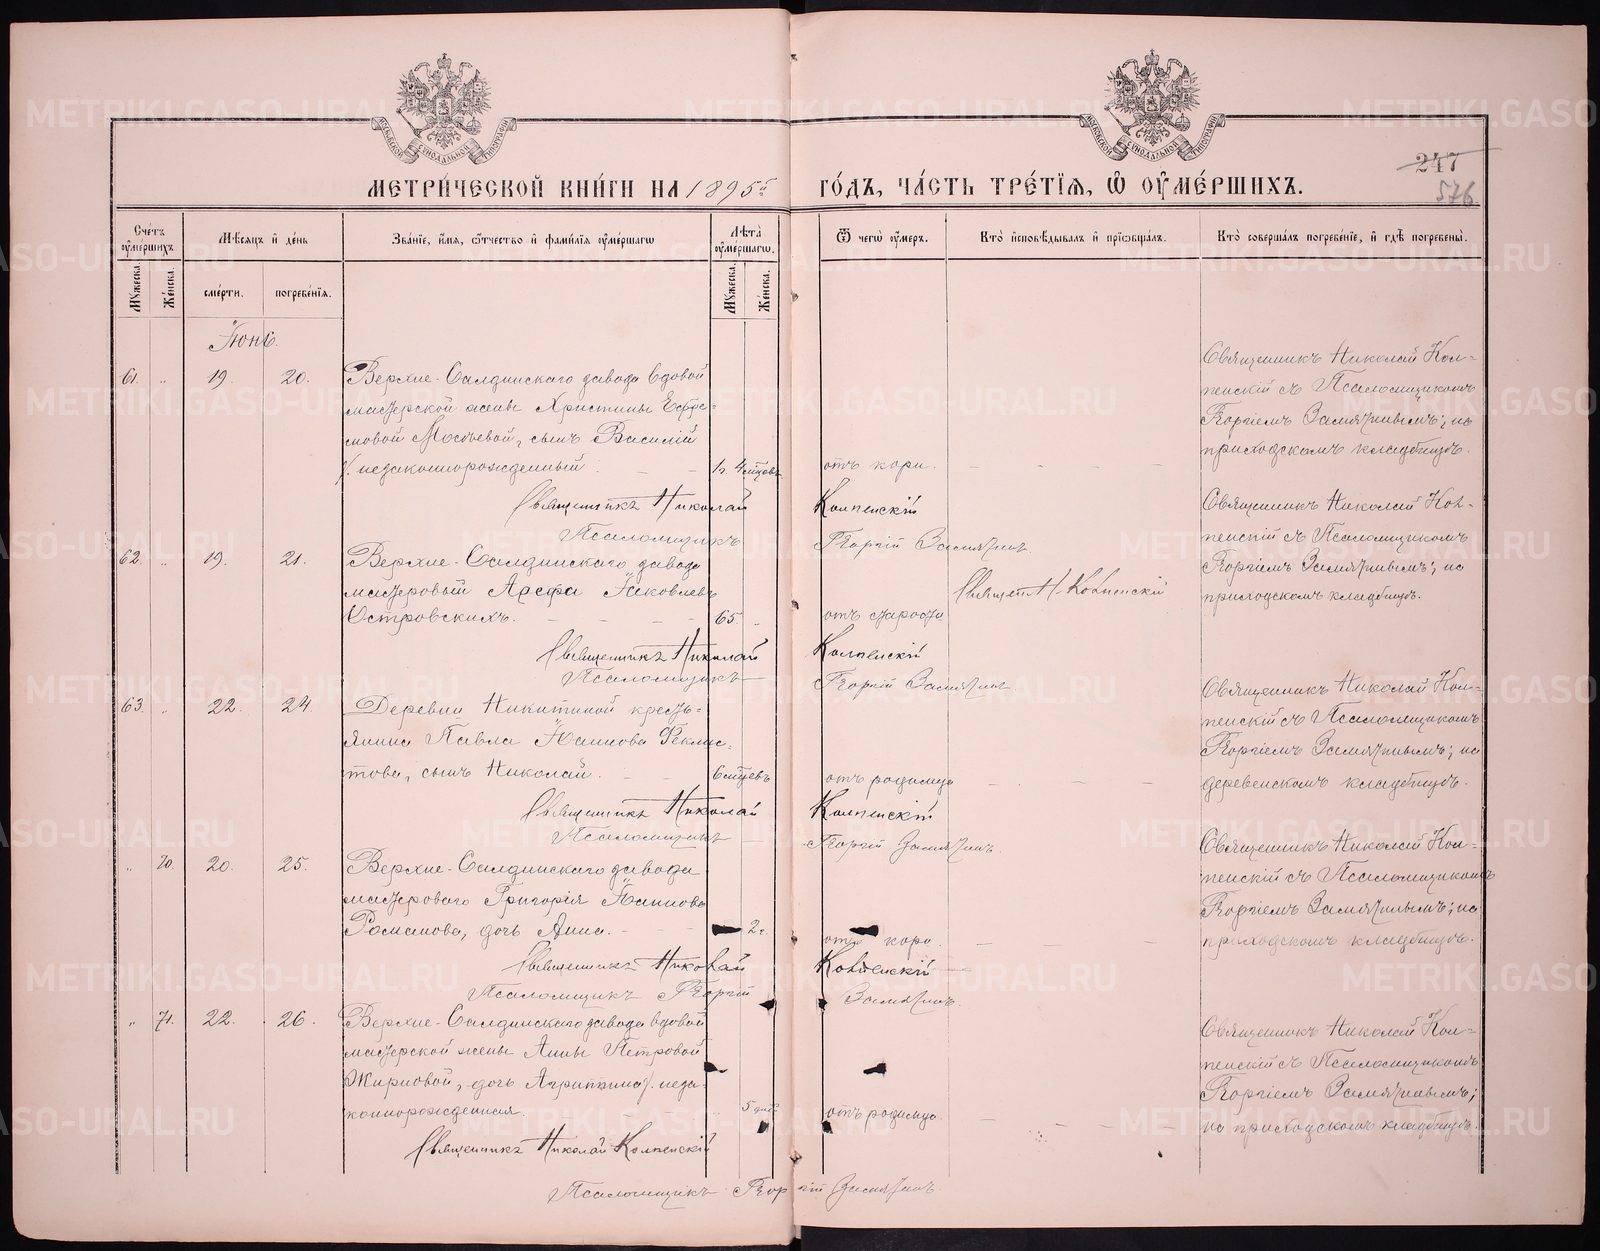 247
576
МЕТРИЧЕСКОЙ КНИГИ НА 1895й ГОДЪ, ЧАСТЬ ТРЕТІѦ, Ѽ ОУМЕРШИХЪ.
Счетъ оумершихъ.
Мужеска.
Женска.
Мѣсѧцъ и день
смерти.
погребенїѧ.
Званїе, имѧ, ѿчество и фамилїѧ оумершагѡ
Лѣта оумершагѡ.
Мужеска.
Женска.
Ѿ чегѡ оумеръ.
Кто исповѣдывалъ и прїѡбщалъ.
Кто совершалъ погребенїе, и гдѣ погребены.
Іюнь.
61. „ 19. 20.
Верхне-Салдинскаго завода вдовой
мастерской жены Христины Ефре-
мовой, сынъ Василій
незаконнорожденный. 1г. 4 мѣсцовъ
отъ кори.
Священникъ Николай Кол-
пенскій съ Псаломщикомъ
Георгіемъ Замятнинымъ; на
приходскомъ кладбищѣ.
Священникъ Николай Колпенскій
Псаломщикъ Георгій Замятнинъ
62. „ 19. 21.
Верхне-Салдинскаго завода
мастеровый Арефа Яковлевъ
Островскихъ. 65 „
отъ старости
Священ. Н. Колпенскій
Священникъ Николай Кол-
пенскій съ Псаломщикомъ
Георгіемъ Замятнинымъ; на
приходскомъ кладбищѣ.
Священникъ Николай Колпенскій
Псаломщикъ Георгій Замятнинъ
63. „ 22. 24.
Деревни Никитиной кресть-
янина Павла Іоаннова Феклис-
това, сынъ Николай. 6 мѣсцевъ
отъ родимца
Священникъ Николай Кол-
пенскій съ Псаломщикомъ
Георгіемъ Замятнинымъ; на
деревенскомъ кладбищѣ.
Священникъ Николай Колпенскій
Псаломщикъ Георгій Замятнинъ.
„ 70. 20. 25.
Верхне-Салдинскаго завода
мастероваго Григорія Іоаннова
Романова, дочь Анна. 2 г.
отъ кори.
Священникъ Николай Кол-
пенскій съ Псаломщикомъ
Георгіемъ Замятнинымъ; на
приходскомъ кладбищѣ.
Священникъ Николай Колпенскій
Псаломщикъ Георгій Замятнинъ.
„ 71. 22. 26.
Верхне-Салдинскаго завода вдовой
мастерской жены Анны Петровой
Жирновой, дочь Агриппина, неза-
коннорожденная. 5 дней
отъ родимца.
Священникъ Николай Кол-
пенскій съ Псаломщикомъ
Георгіемъ Замятнинымъ;
на приходскомъ кладбищѣ.
Священникъ Николай Колпенскій
Псаломщикъ Георгій Замятнинъ.
METRIKI.GASO-URAL.RU